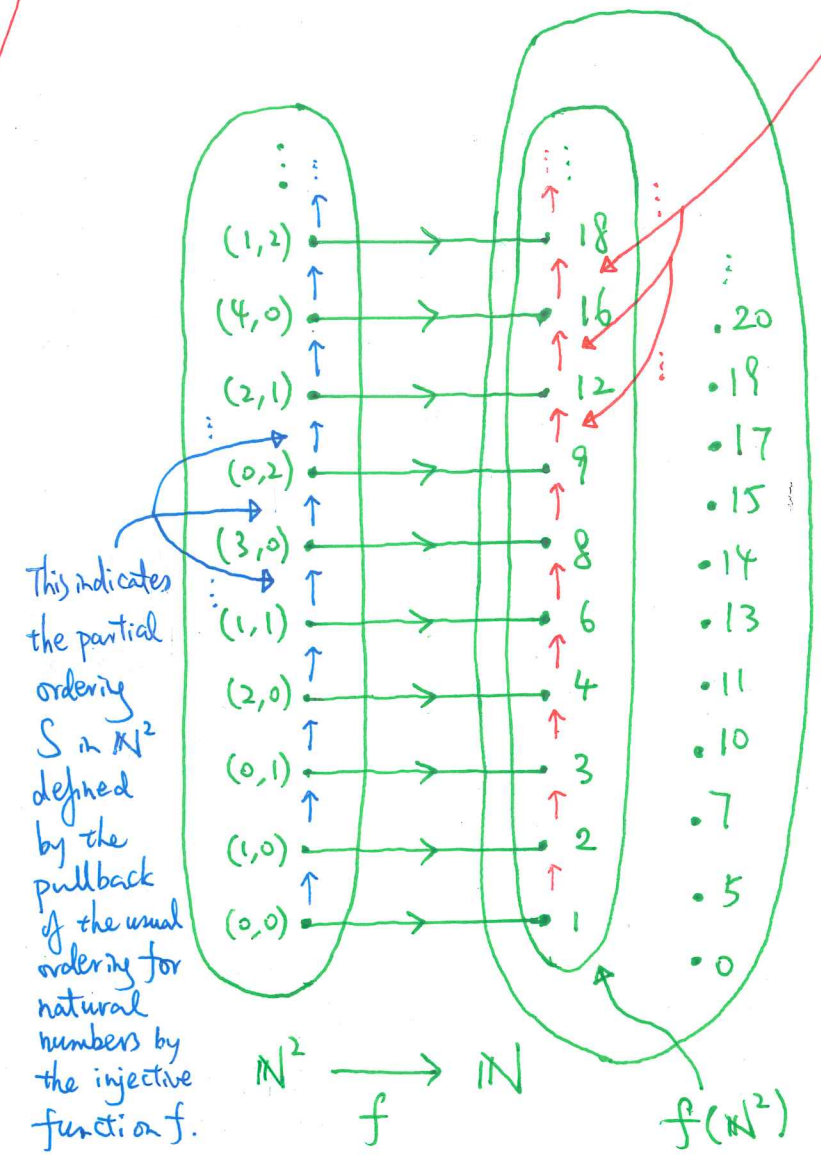 (1,2) 18
(4,0) 16
. 20
(2,1) 12
. 19
(0,2) 9
. 17
. 15
(3,0) 8
. 14
(1,1) 6
. 13
(2,0) 4
. 11
. 10
(0,1) 3
. 7
(1,0) 2
. 5
(0,0) 1
. 0
This indicates
the partial
ordering
S in ℕ²
defined
by the
pullback
of the usual
ordering for
natural
numbers by
the injective
function f.
ℕ² → ℕ
f
f(ℕ²)